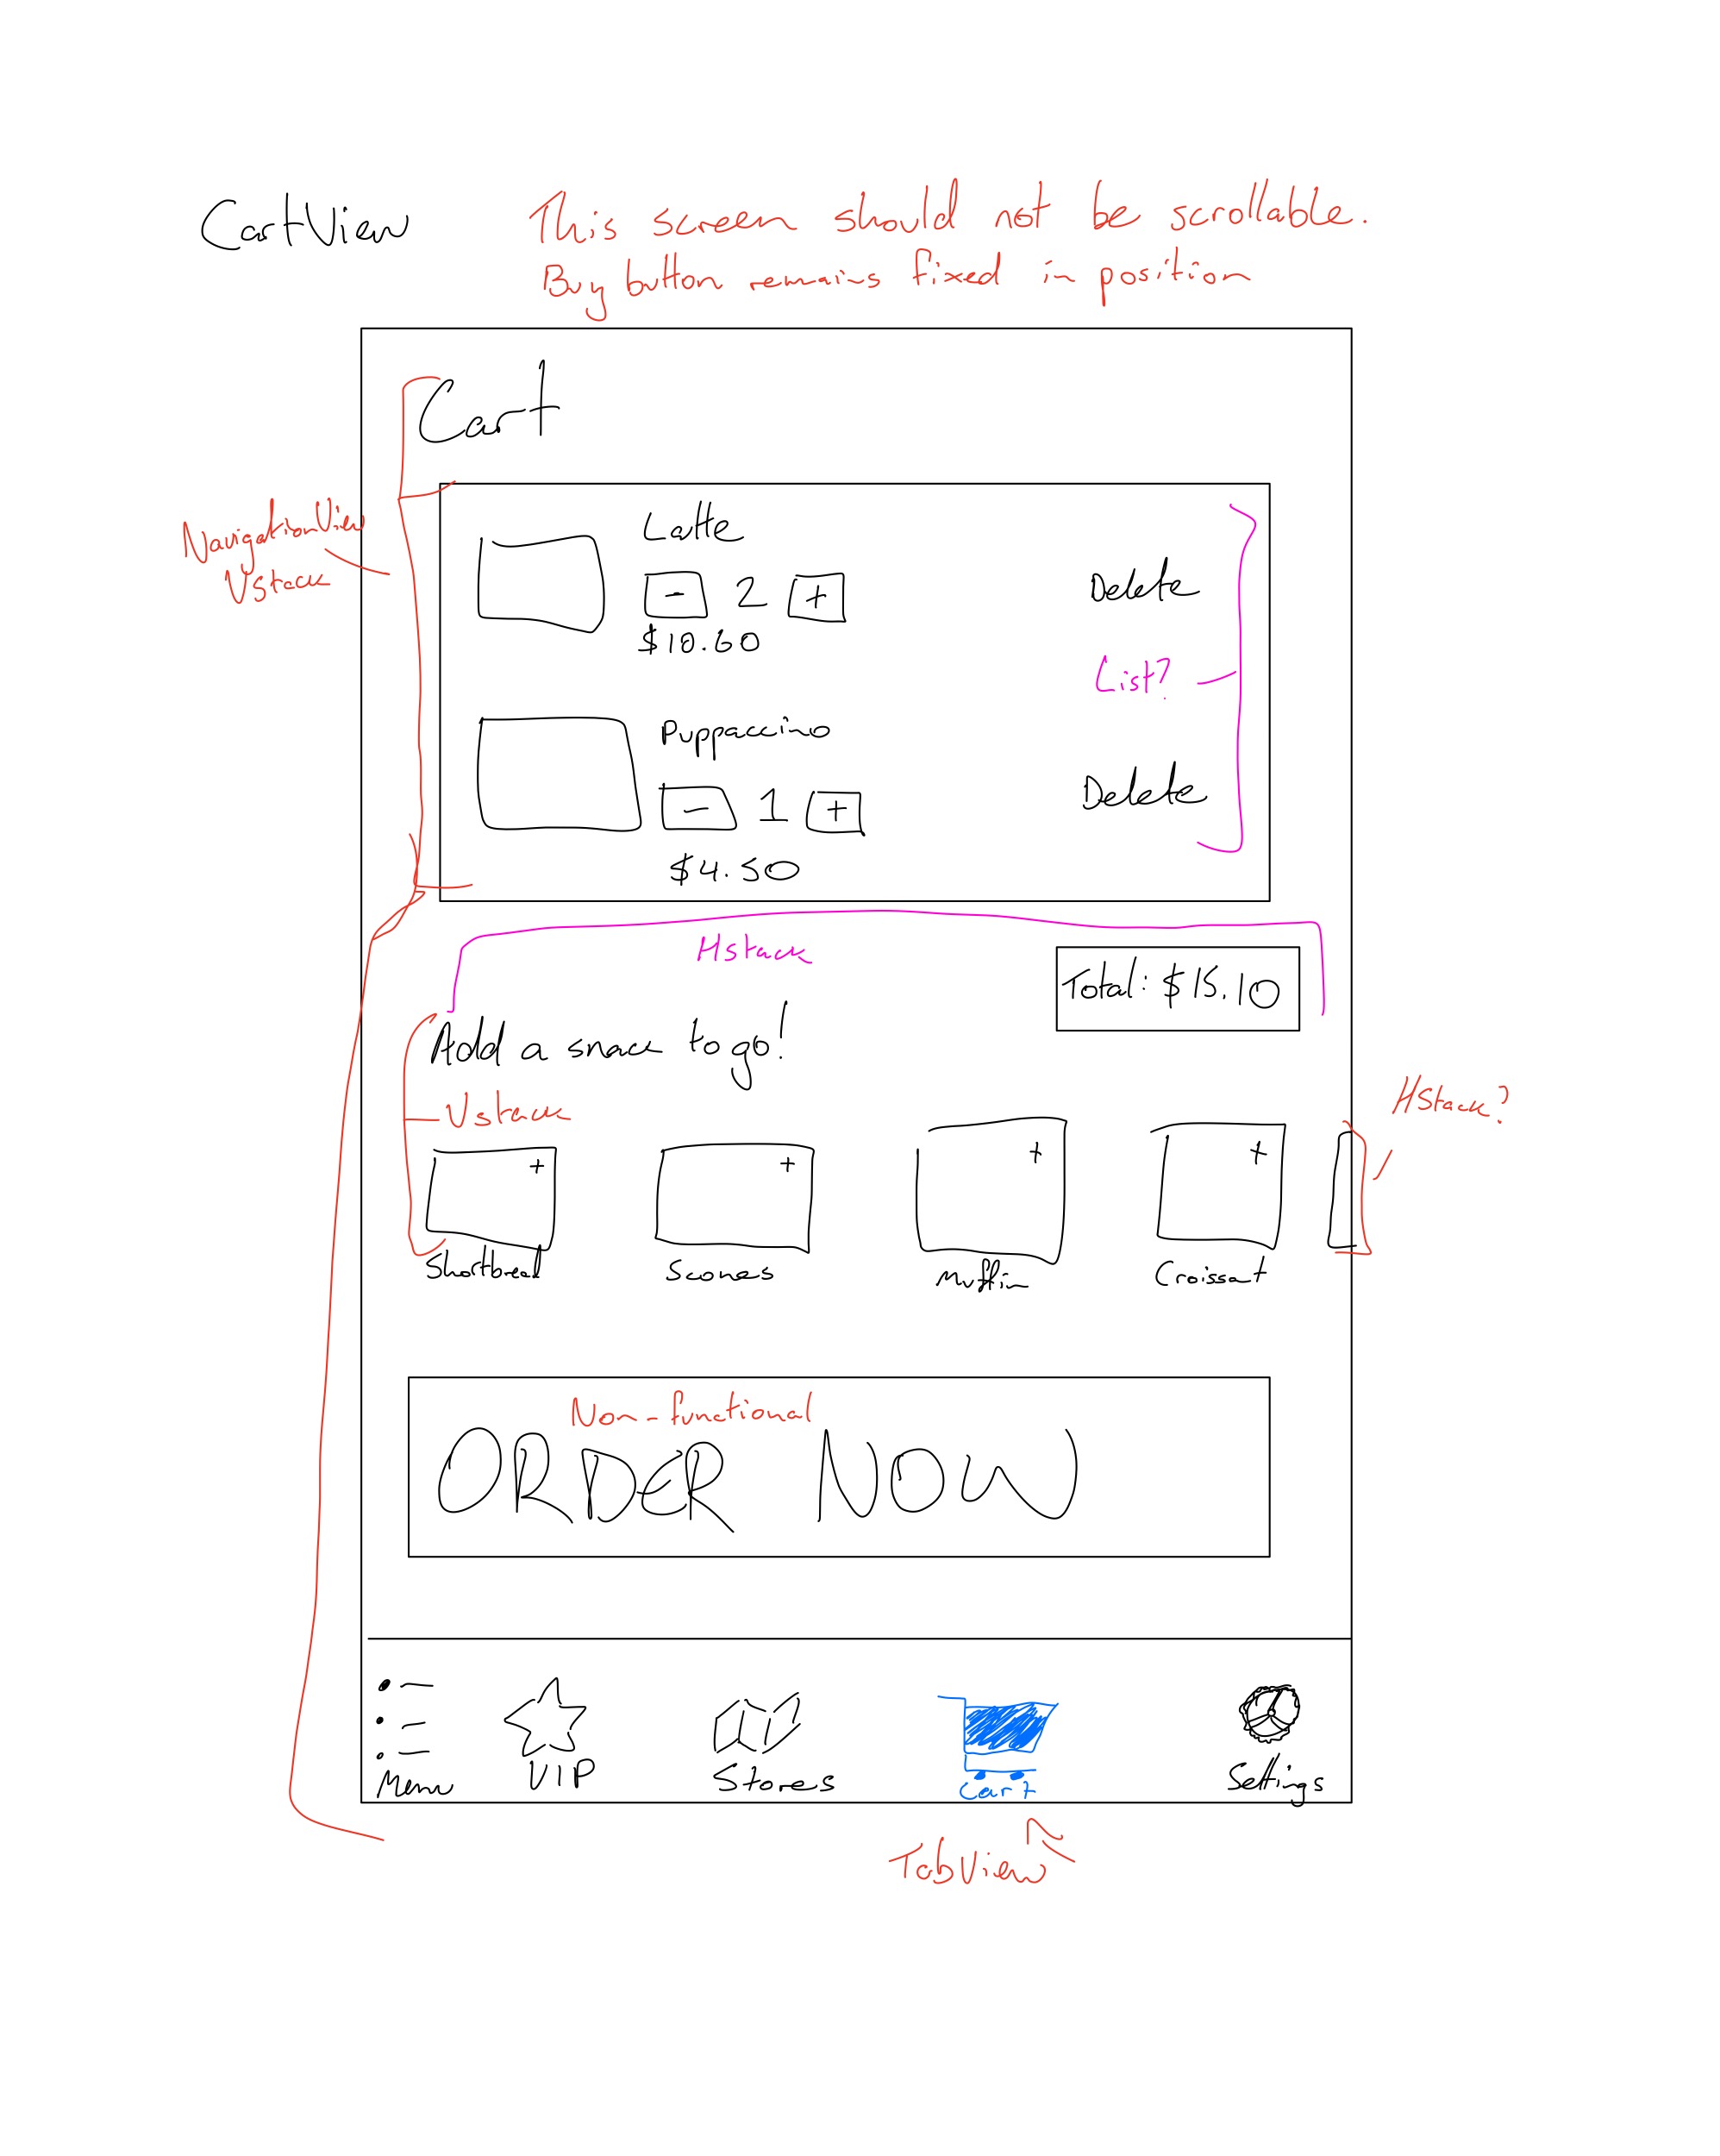 CartView
This screen should not be scrollable.
Buy button remains fixed in position
Cart
NavigationView
Vstack
Latte
- 2 +
$10.60
Delete
List?
Puppaccino
- 1 +
$4.50
Delete
Hstack
Total: $15.10
Add a snack to go!
Vstack
HStack?
+ + + +
Shortbread Scones Muffin Croissat
Non-functional
ORDER NOW
Menu VIP Stores Cart Settings
TabView